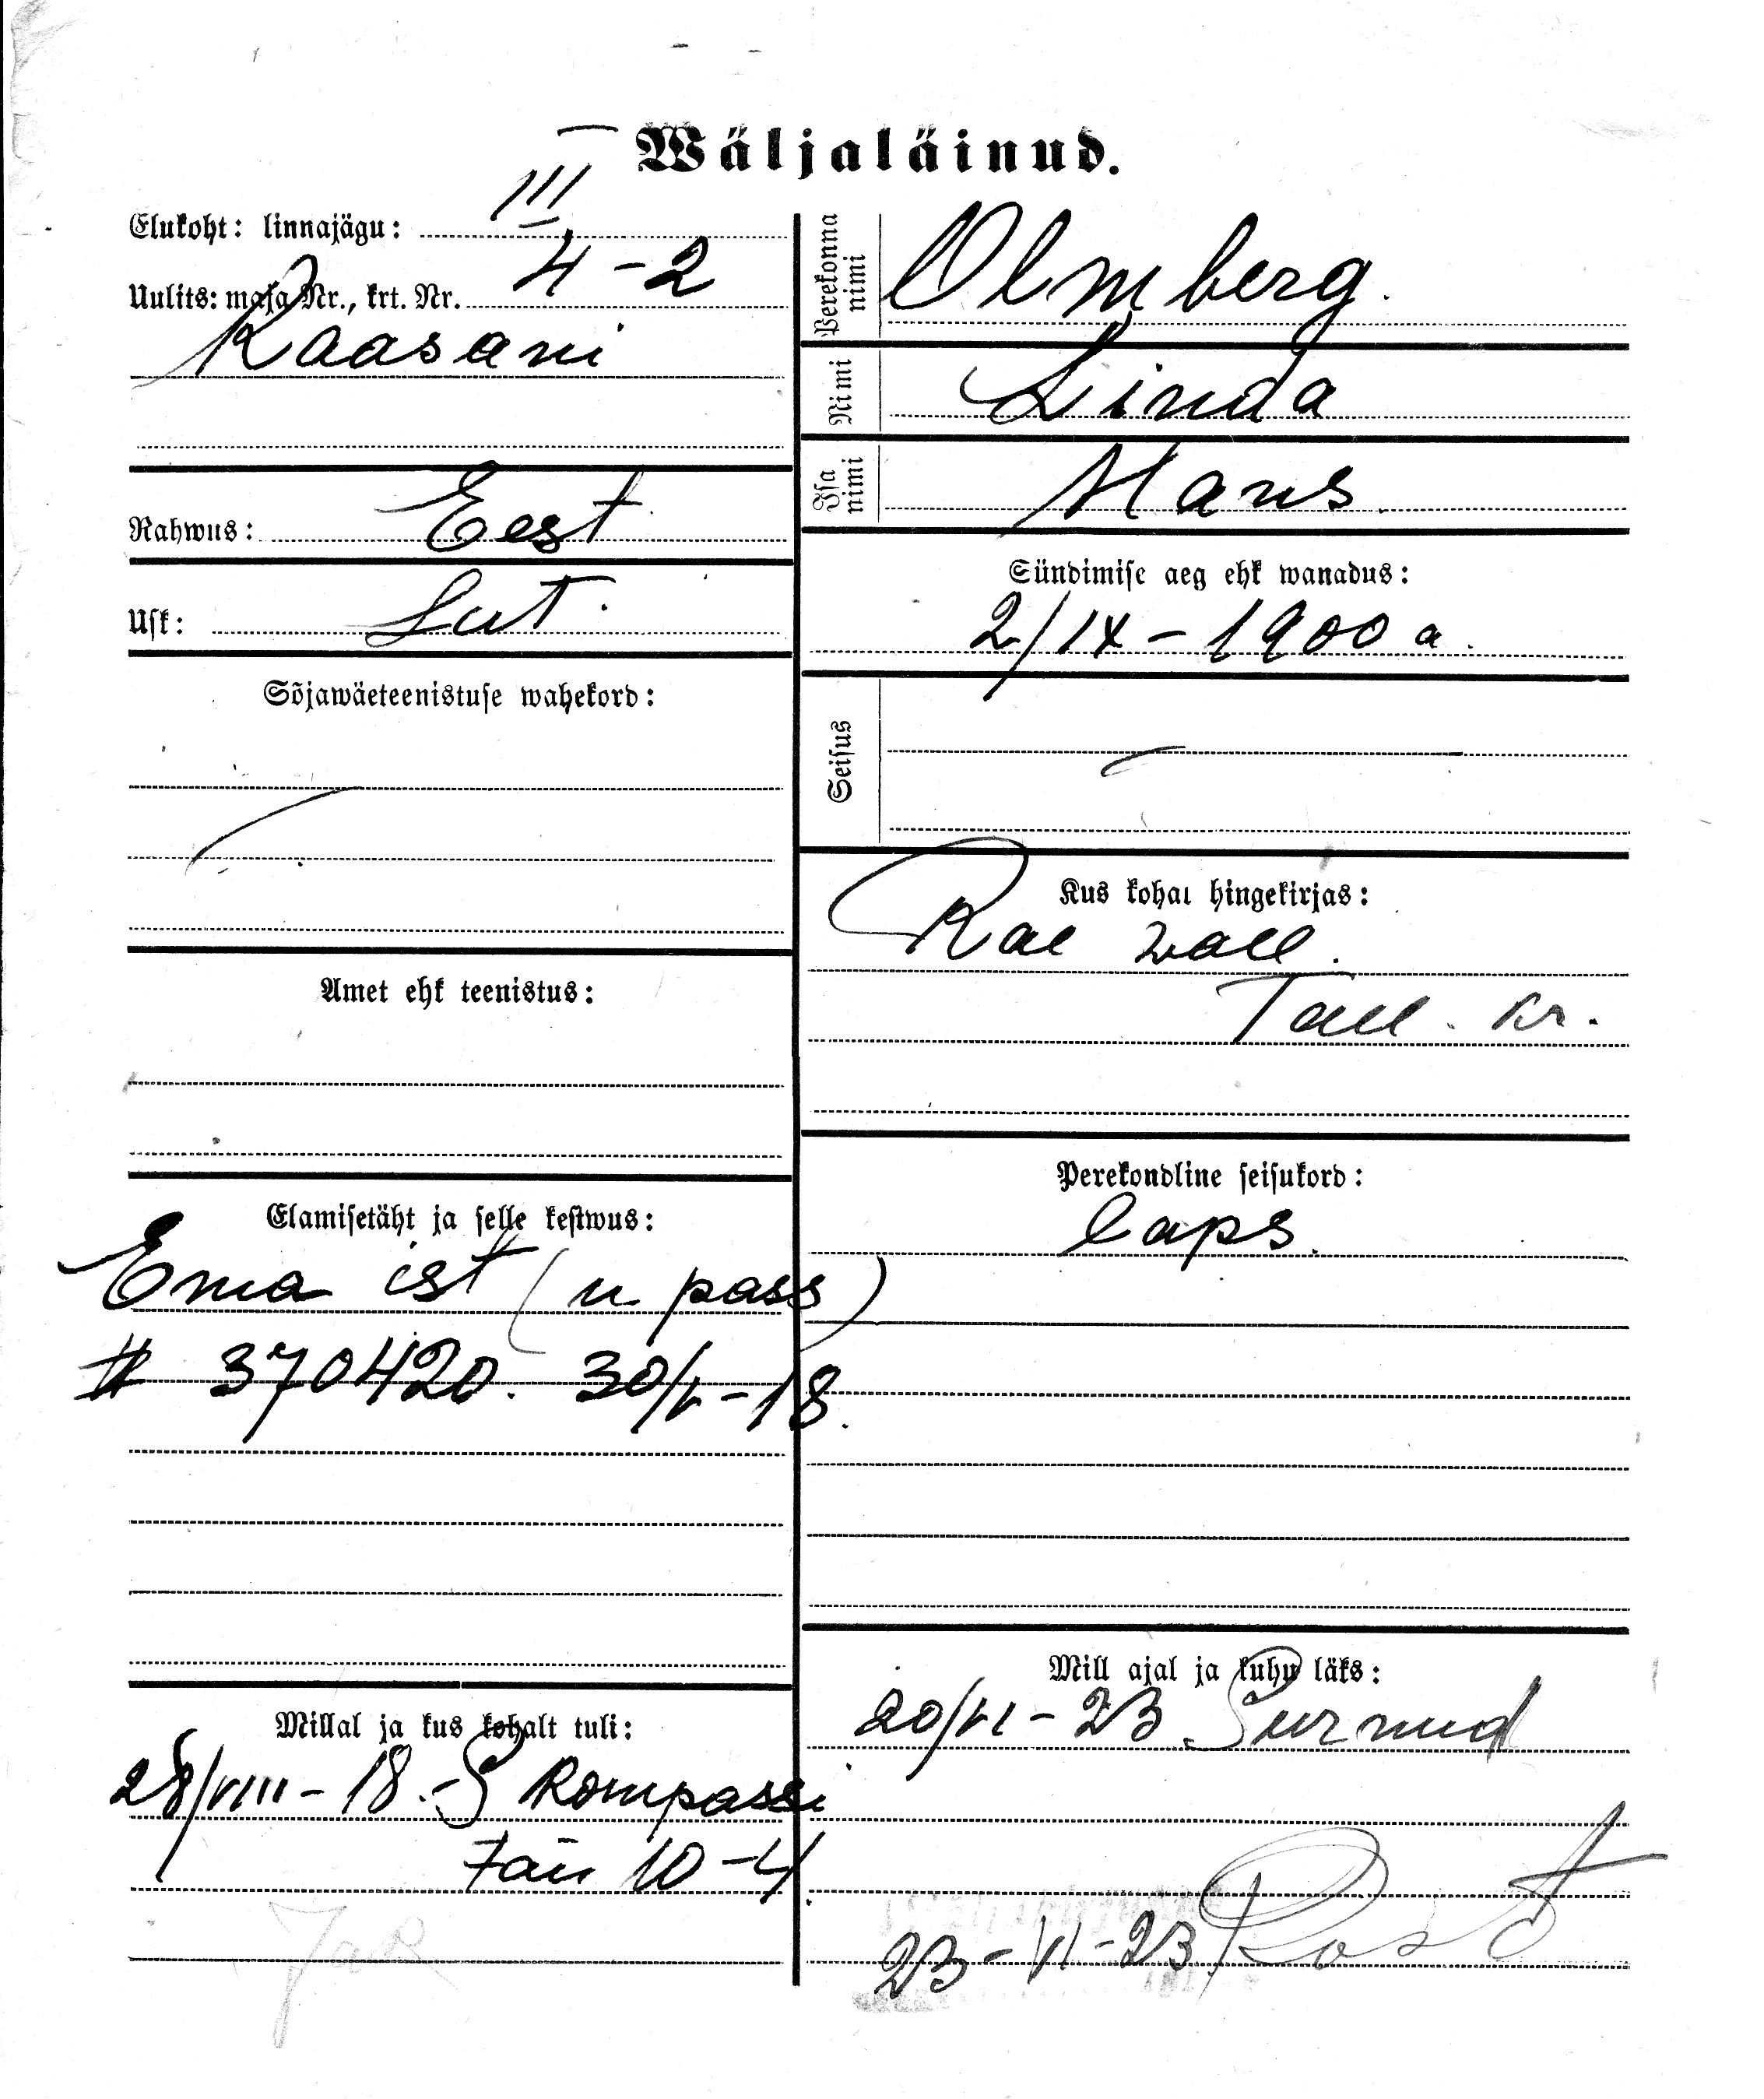 Wäljaläinud.
Elukoht: linnajägu: III
Uulits: maja Nr., krt. Nr. 4-2
Kaasani
Rahwus: Eest
Usk: Lut.
Sõjawäeteenistuse wahekord:
Amet ehk teenistus:
Elamisetäht ja selle kestwus:
Ema ist (u pass)
# 370420. 30/V-18.
Millal ja kus kohalt tuli:
28/VIII-18. S Kompassi
Tän 10-4
Perekonna nimi Olmberg.
Nimi Linda
Isa nimi Hans.
Sündimise aeg ehk wanadus:
2/IX-1900 a.
Seisus
Kus kohal hingekirjas:
Rae wall.
Tall. kr.
Perekondline seisukord:
laps.
Mill ajal ja kuhu läks:
20/VI-23 Surnud
23-VI-23